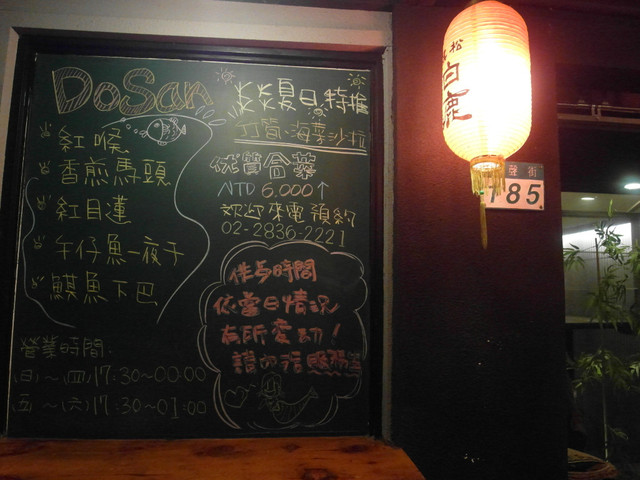 DoSan
紅喉
香煎馬頭
紅目蓮
午仔魚一夜干
鱆魚下巴
營業時間:
(日)~(四)17:30~00:00
(五)~(六)17:30~01:00
炎炎夏日特推
竹筒海菜沙拉
依質合菜
NTD 6.000↑
欢迎來電預約
02-2836-2221
休息時間
依當日情況
有所変动!
請詢問
松
白鹿
聲街
185